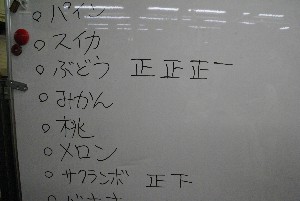 ○ パイン
○ スイカ
○ ぶどう 正 正 正 一
○ みかん
○ 桃
○ メロン
○ サクランボ 正 下